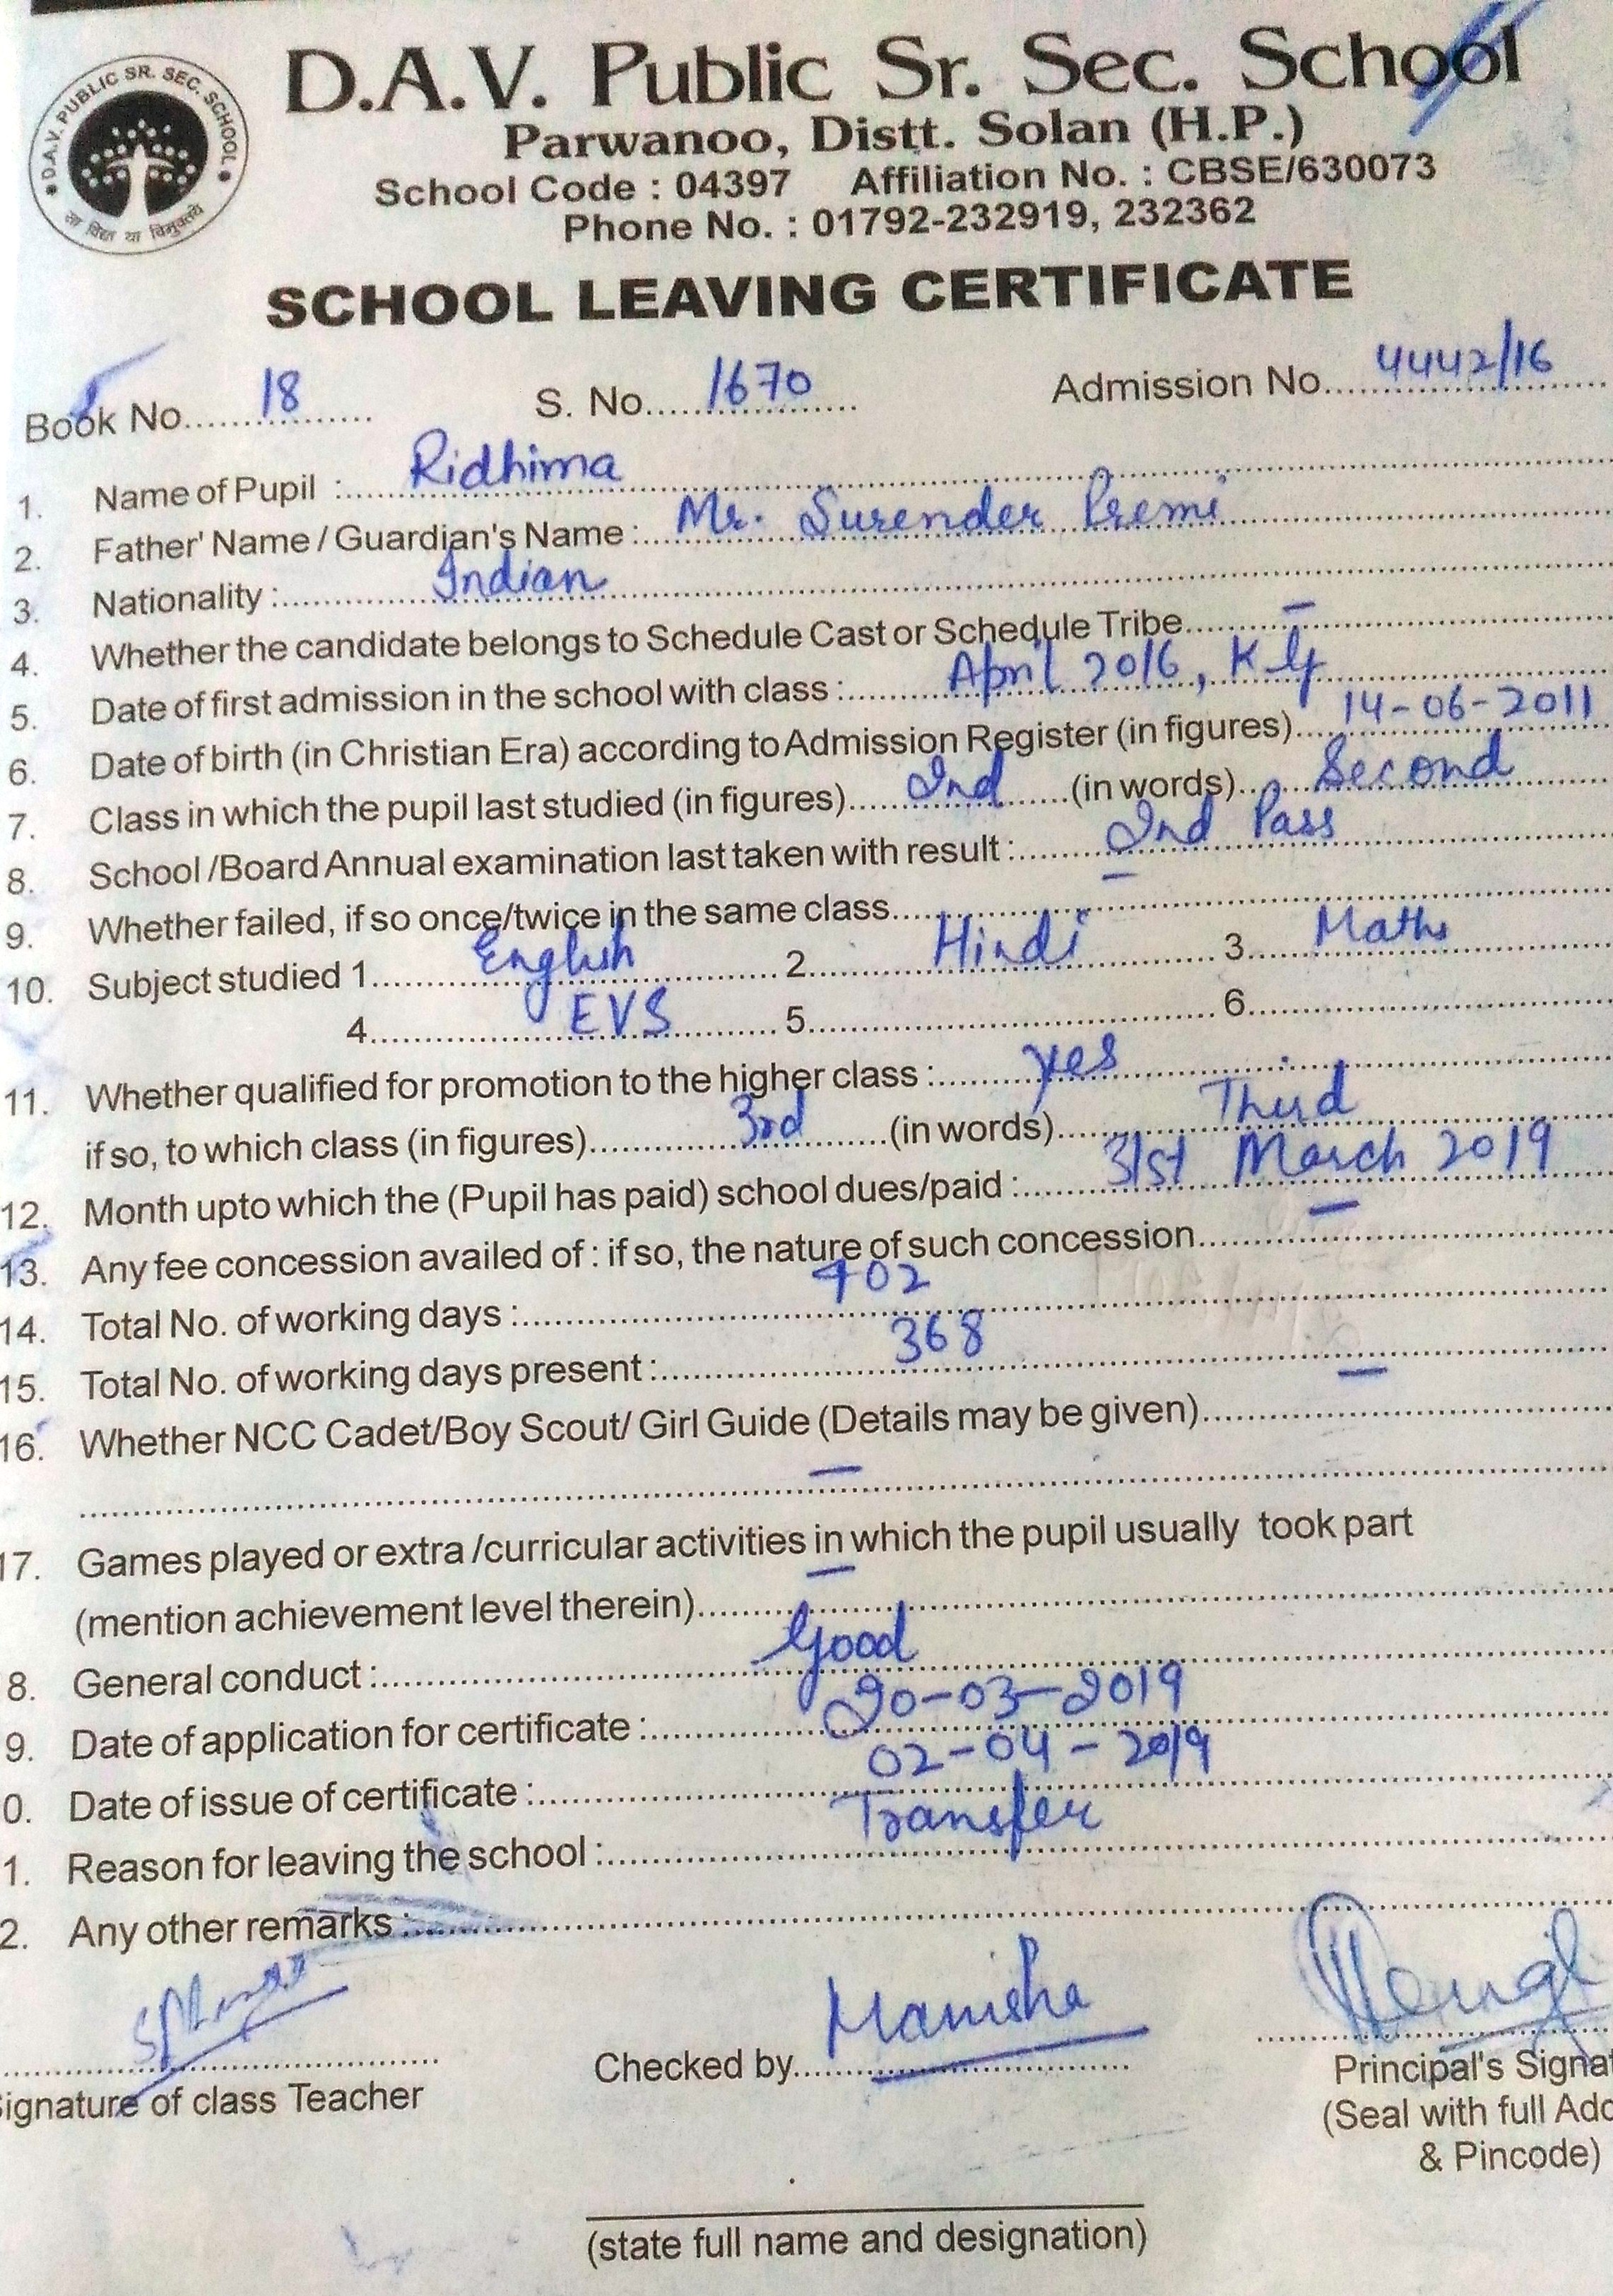 D.A.V. PUBLIC SR. SEC. SCHOOL
सा विद्या या विमुक्तये
D.A.V. Public Sr. Sec. School
Parwanoo, Distt. Solan (H.P.)
School Code : 04397 Affiliation No. : CBSE/630073
Phone No. : 01792-232919, 232362
SCHOOL LEAVING CERTIFICATE
Book No. 18 S. No. 1670 Admission No. 4442/16
1. Name of Pupil : Ridhima
2. Father' Name / Guardian's Name : Mr. Surender Premi
3. Nationality : Indian
4. Whether the candidate belongs to Schedule Cast or Schedule Tribe –
5. Date of first admission in the school with class : April 2016, K.G
6. Date of birth (in Christian Era) according to Admission Register (in figures) 14-06-2011
7. Class in which the pupil last studied (in figures) 2nd (in words) Second
8. School /Board Annual examination last taken with result : 2nd Pass
9. Whether failed, if so once/twice in the same class –
10. Subject studied 1. English 2. Hindi 3. Maths
4. EVS 5. 6.
11. Whether qualified for promotion to the higher class : yes
if so, to which class (in figures) 3rd (in words) Third
12. Month upto which the (Pupil has paid) school dues/paid : 31st March 2019
13. Any fee concession availed of : if so, the nature of such concession –
14. Total No. of working days : 402
15. Total No. of working days present : 368
16. Whether NCC Cadet/Boy Scout/ Girl Guide (Details may be given) –
–
17. Games played or extra /curricular activities in which the pupil usually took part
(mention achievement level therein) –
8. General conduct : Good
9. Date of application for certificate : 20-03-2019
0. Date of issue of certificate : 02-04-2019
1. Reason for leaving the school : Transfer
2. Any other remarks :
Checked by Manisha
ignature of class Teacher Principal's Signa
(Seal with full Add
& Pincode)
(state full name and designation)